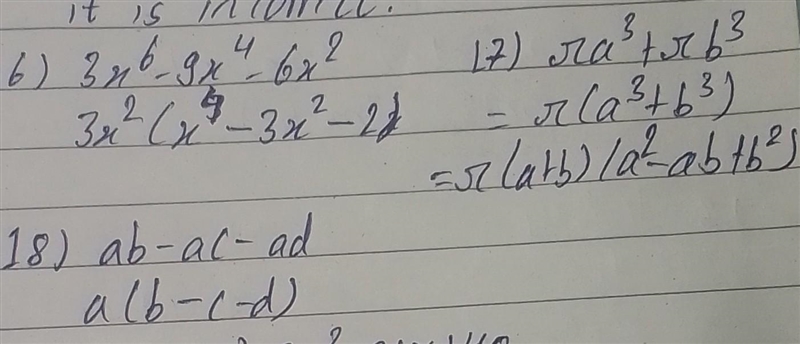 it is
6) 3x⁶ - 9x⁴ - 6x²
3x² (x⁴ - 3x² - 2)
17) πa³ + πb³
= π(a³ + b³)
= π(a+b) (a² - ab + b²)
18) ab - ac - ad
a(b - c - d)